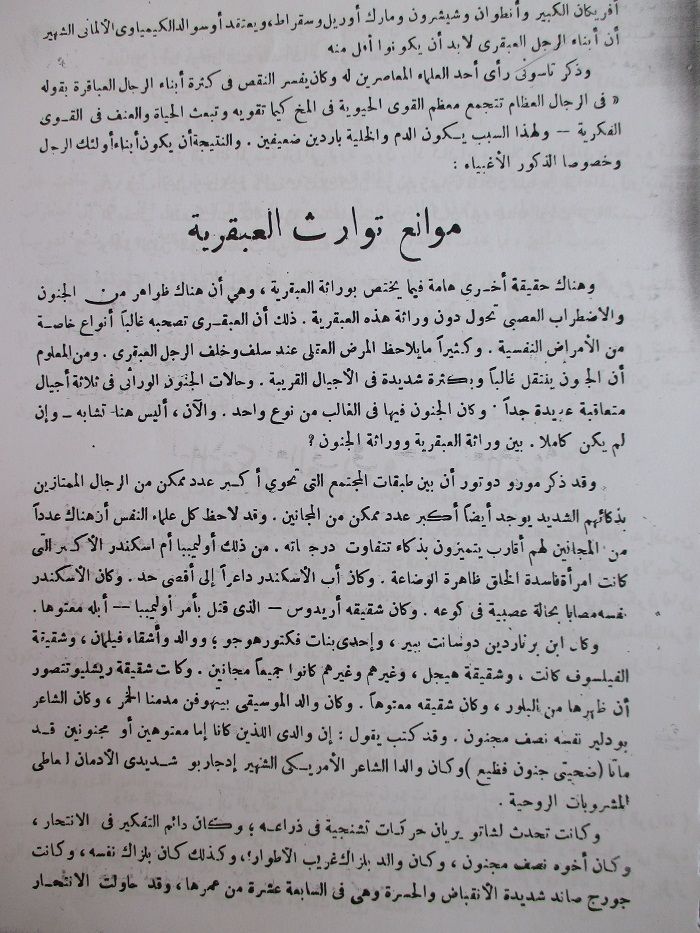 أفريكان الكبير وأنطوان وشيشرون ومارك أوريل وسقراط، ويعتقد أوسوالد الكيمياوى الألمانى الشهير
أن أبناء الرجل العبقرى لابد أن يكونوا أقل منه
وذكر تاسونى رأى أحد العلماء المعاصرين له وكان يفسر النقص فى كثرة أبناء الرجال العباقرة بقوله
« فى الرجال العظام تتجمع معظم القوى الحيوية فى المخ كيما تقويه وتبعث الحياة والعنف فى القوى
الفكرية — ولهذا السبب يكون الدم والخلية باردين ضعيفين . والنتيجة أن يكون أبناء أولئك الرجل
وخصوصا الذكور الأغبياء :
موانع توارث العبقرية
وهناك حقيقة أخرى هامة فيما يختص بوراثة العبقرية ، وهى أن هناك ظواهر من الجنون
والاضطراب العصبى تحول دون وراثة هذه العبقرية . ذلك أن العبقرى تصحبه غالباً أنواع خاصة
من الأمراض النفسية . وكثيراً ما يلاحظ المرض العقلى عند سلف وخلف الرجل العبقرى . ومن المعلوم
أن الجنون ينتقل غالباً وبكثرة شديدة فى الأجيال القريبة . وحالات الجنون الوراثى فى ثلاثة أجيال
متعاقبة عديدة جداً . وكان الجنون فيها فى الغالب من نوع واحد . والآن ، أليس هناك تشابه — وإن
لم يكن كاملا . بين وراثة العبقرية ووراثة الجنون ؟
وقد ذكر مورو دوتور أن بين طبقات المجتمع التى تحوي أكبر عدد ممكن من الرجال الممتازين
بذكائهم الشديد يوجد أيضاً أكبر عدد ممكن من المجانين . وقد لاحظ كل علماء النفس أن هناك عدداً
من المجانين لهم أقارب يتميزون بذكاء تتفاوت درجاته . من ذلك أوليمبيا أم اسكندر الأكبر التى
كانت امرأة فاسدة الخلق ظاهرة الوضاعة . وكان أب الأسكندر داعراً إلى أقصى حد . وكان الأسكندر
نفسه مصابا بحالة عصبية فى كوعه . وكان شقيقه أريدوس — الذى قتل بأمر أوليمبيا — أبله معتوها .
وكان ابن برناردين دوسانت بيير ، وإحدى بنات فكتور هوجو ؛ ووالد وأشقاء فيلمان ، وشقيقة
الفيلسوف كانت ، وشقيقة هيجل ، وغيرهم وغيرهم كانوا جميعاً مجانين . وكانت شقيقة ريشليو تتصور
أن ظهرها من البلور ، وكان شقيقه معتوهاً . وكان والد الموسيقى بيتهوفن مدمنا الخمر ، وكان الشاعر
بودلير نفسه نصف مجنون . وقد كتب يقول : إن والدى اللذين كانا إما معتوهين أو مجنونين قد
ماتا (ضحيتى جنون فظيع ) وكان والدا الشاعر الأمريكى الشهير إدجار بو شديدى الأدمان لتعاطى
المشروبات الروحية .
وكانت تحدث لشاتوبريان حركات تشنجية فى ذراعه ؛ وكان دائم التفكير فى الانتحار ،
وكان أخوه نصف مجنون ، وكان والد بلزاك غريب الأطوار ؟، وكذلك كان بلزاك نفسه ، وكانت
جورج صاند شديدة الأنقباض والحسرة وهى فى السابعة عشرة من عمرها ، وقد حاولت الانتحار